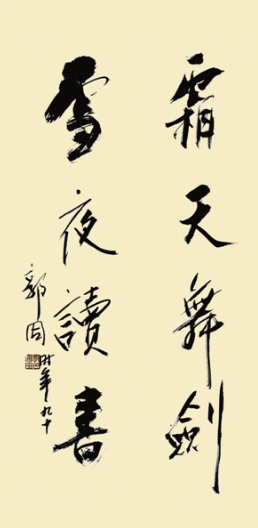 霜天舞劍
雪夜讀書
郭周 時年九十